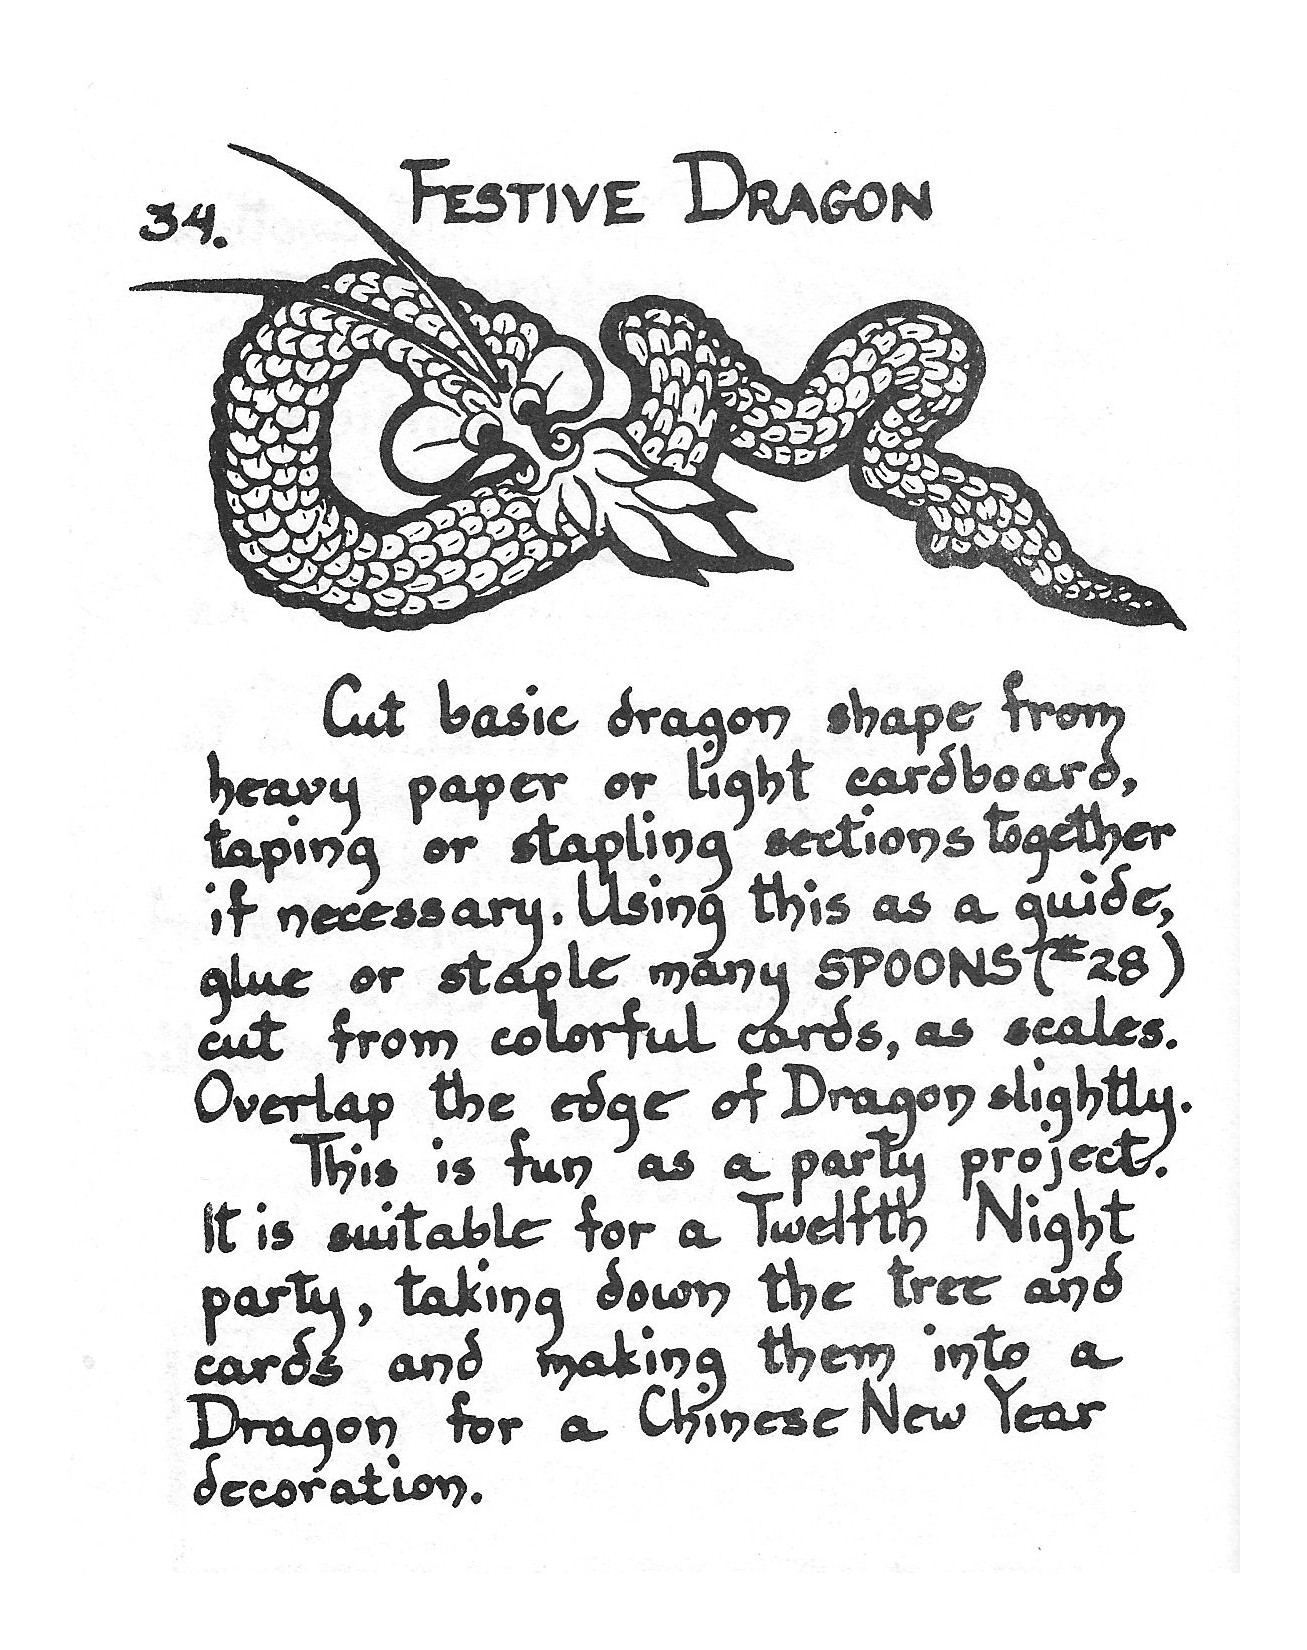 FESTIVE DRAGON
34.
Cut basic dragon shape from
heavy paper or light cardboard,
taping or stapling sections together
if necessary. Using this as a guide,
glue or staple many SPOONS (#28)
cut from colorful cards, as scales.
Overlap the edge of Dragon slightly.
This is fun as a party project.
It is suitable for a Twelfth Night
party, taking down the tree and
cards and making them into a
Dragon for a Chinese New Year
decoration.